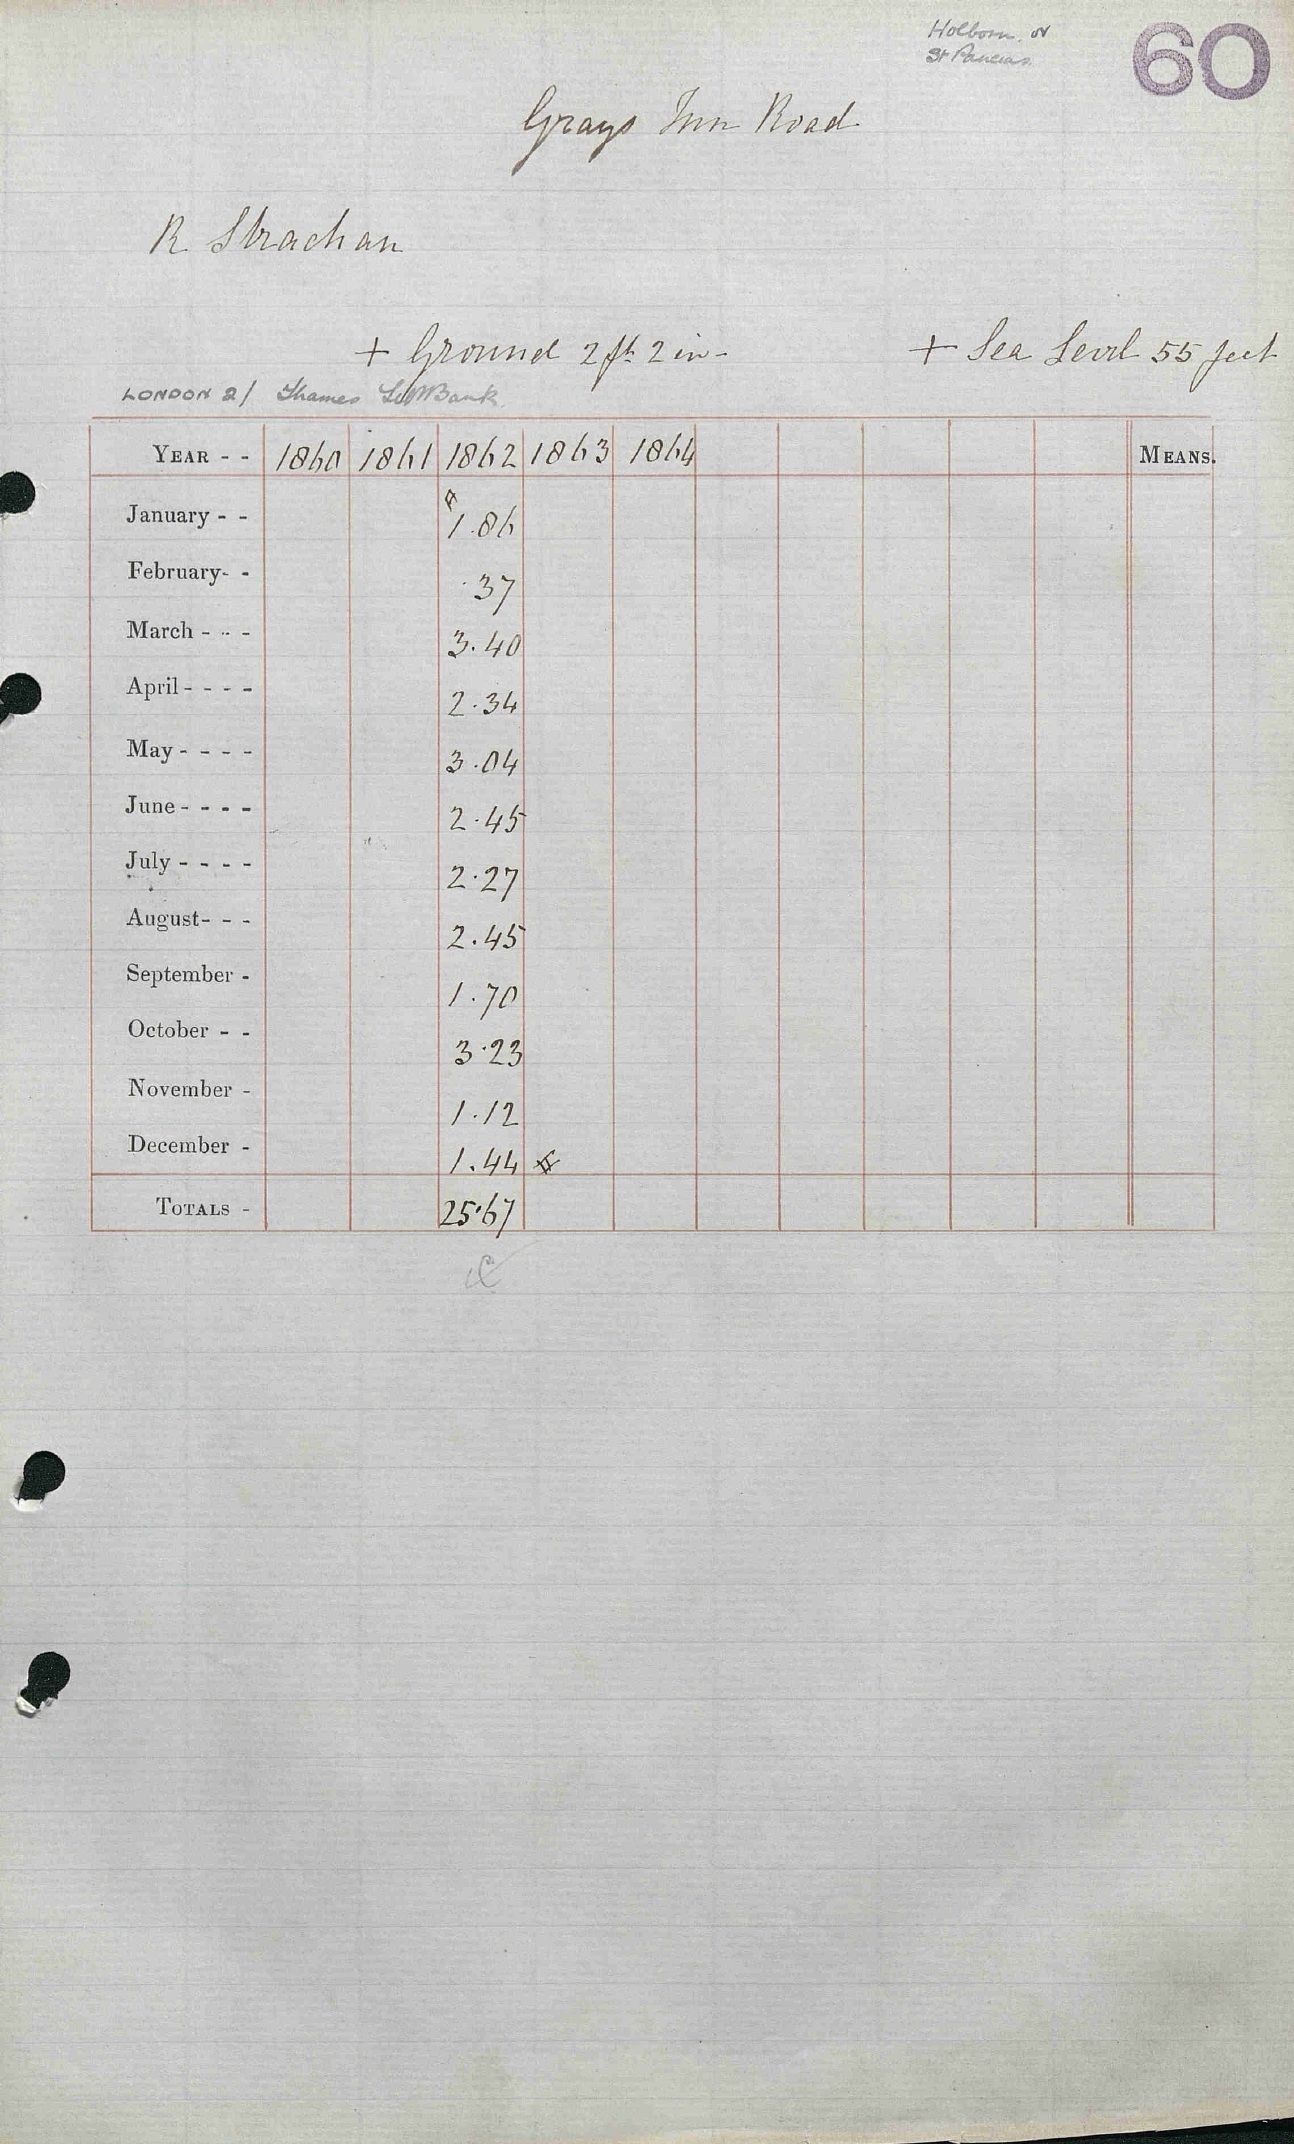 Holborn or
St Pancras
60
Grays Inn Road
R Strachan
+ Ground 2 ft 2 in -
+ Sea Level 55 feet
LONDON 2/ Thames Bank
YEAR - - 1860 1861 1862 1863 1864 MEANS.
January - - 1.86
February- - .37
March - - - 3.40
April - - - - 2.34
May - - - - 3.04
June - - - - 2.45
July - - - - 2.27
August- - - 2.45
September - 1.70
October - - 3.23
November - 1.12
December - 1.44
TOTALS - 25.67